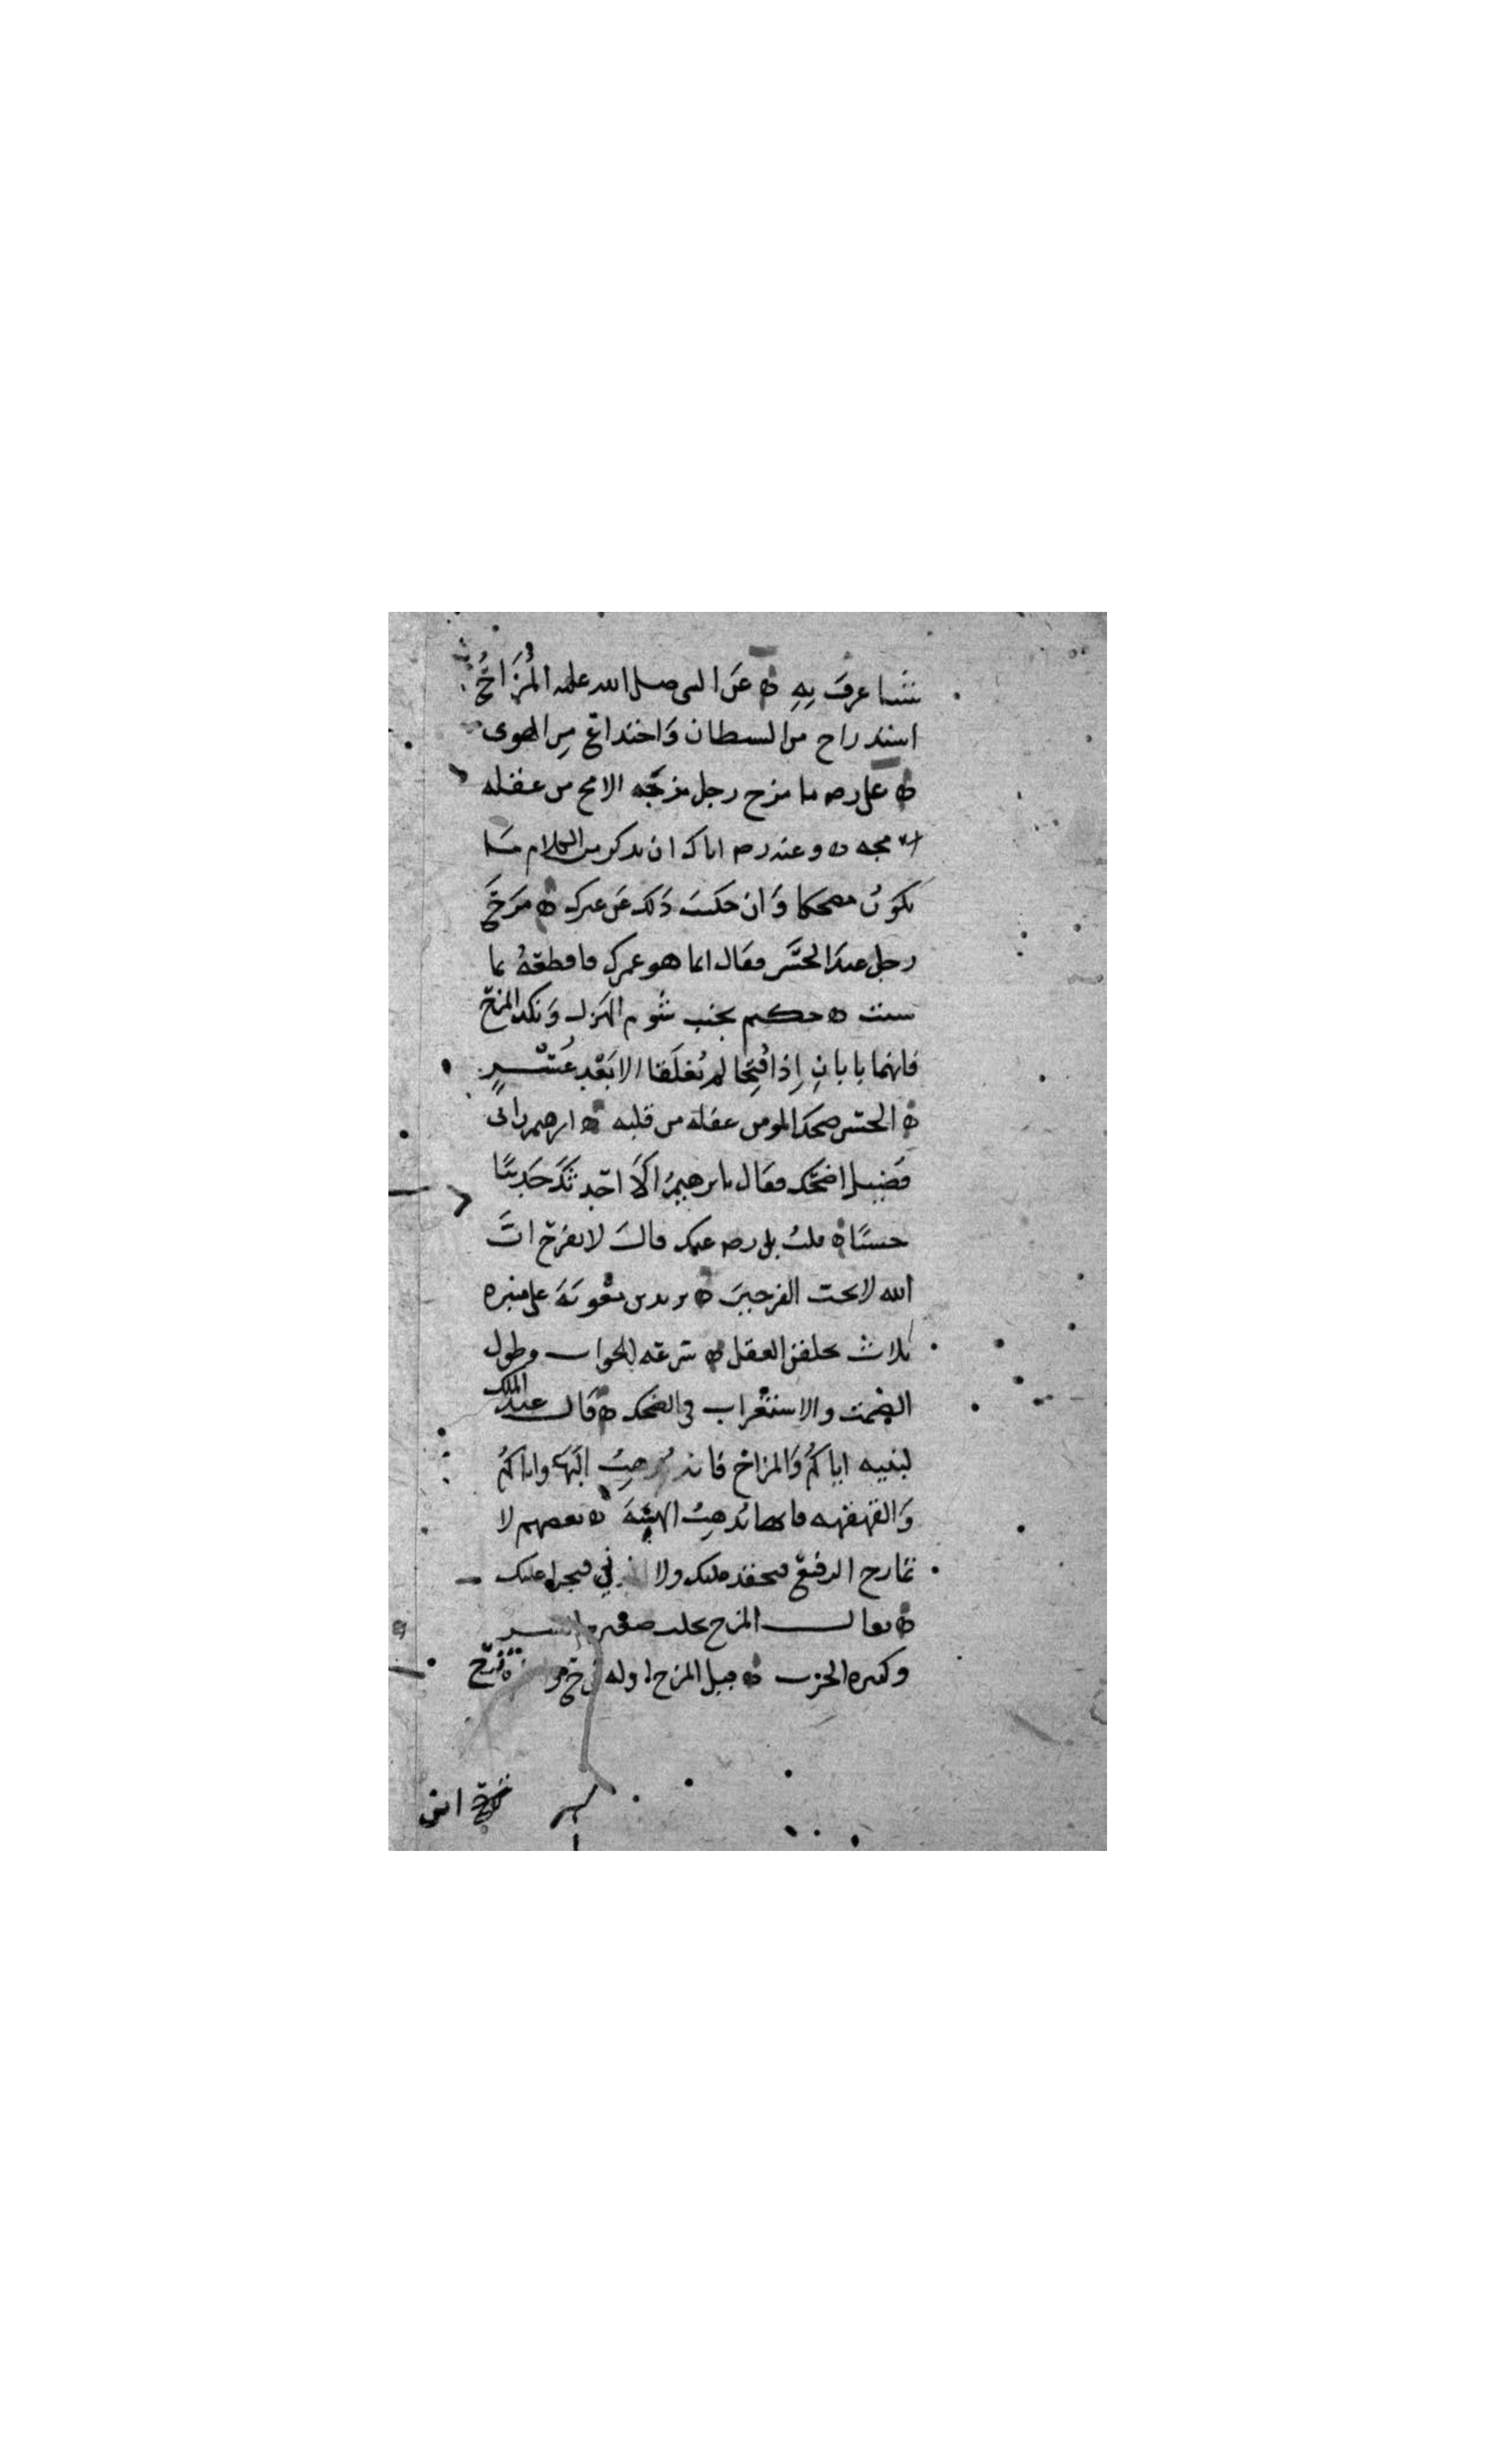 شا عرف به ه عن النبي صلى الله عليه المزاح
استدراج من الشيطان واختداع من الهوى
ه علي رضه ما مزح رجل مزحه الا مج من عقله
مجه ه وعنه رضه اياك ان تذكر من الكلام ما
يكون مضحكا وان حكيت ذلك عن غيرك ه مزح
رجل عند الحسن فقال انما هو عمرك فاقطعه بما
شئت ه حكيم تجنب شوم الهزل ونكد المزح
فانهما بابان اذا فتحا لم يغلقا الا بعد عسر
ه الحسن ضحك المومن غفلة من قلبه ه ابرهيم راني
فضيل اضحك فقال يابرهيم الا احدثك حديثا
حسنا ه قلت بلى رضه عنك قال لا تفرح ان
الله لا يحب الفرحين ه يزيد بن معوية على منبره
ثلاث يخلقن العقل ه سرعة الجواب وطول
الصمت والاستغراب في الضحك ه قال عبد الملك
لبنيه اياكم والمزاح فانه يذهب البهاء واياكم
والقهقهه فانها تذهب الهيبة ه بعضهم لا
تمازح الرفيع فيحقد عليك ولا فيجرا عليك
ه يقال المزح يجلب صغيره الشر
وكبيره الحرب ه قيل المزح اوله فرح واخره ترح
ابن